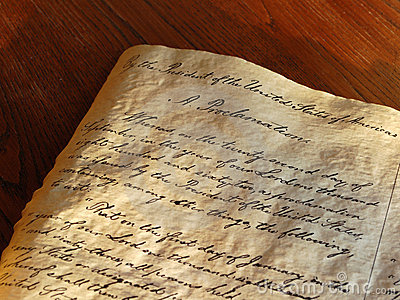 By the President of the United States of America
A Proclamation.
Whereas, on the twenty second day of
September, in the year of our Lord one thousand
eight hundred and sixty two, a proclamation
was issued by the President of the United States,
containing, among other things, the following,
to wit:
That on the first day of
year of our Lord one thousand
and sixty three, all persons
dreamstime